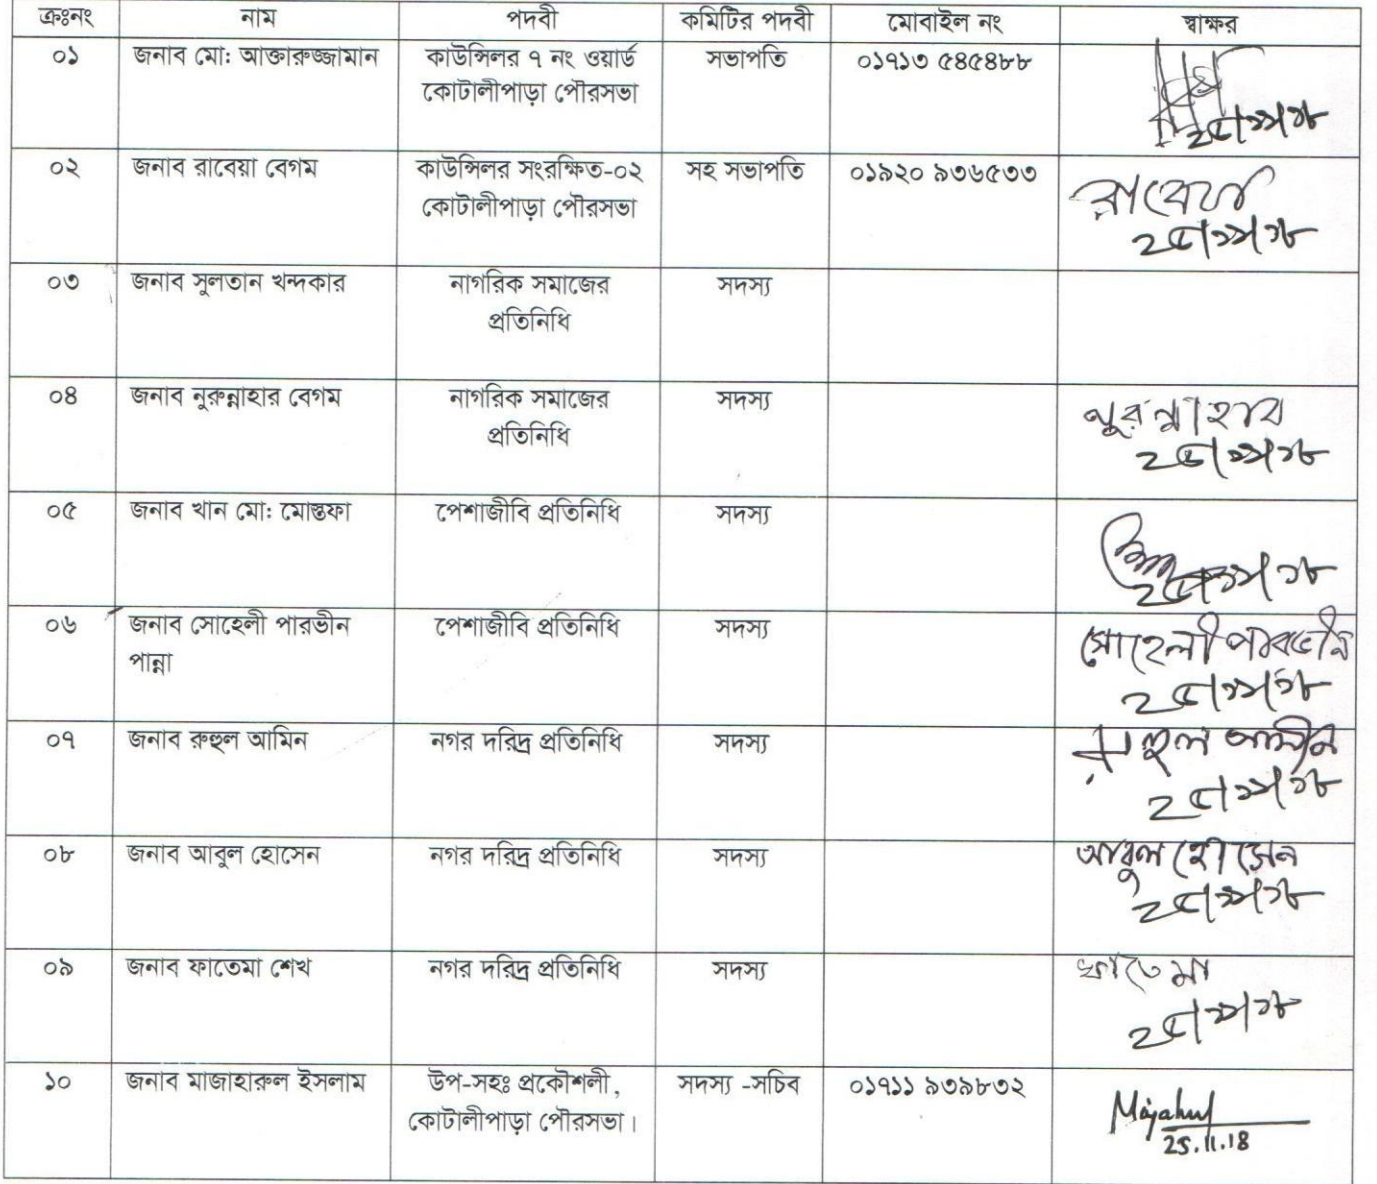 ক্রঃনং নাম পদবী কমিটির পদবী মোবাইল নং স্বাক্ষর
০১ জনাব মো: আক্তারুজ্জামান কাউন্সিলর ৭ নং ওয়ার্ড সভাপতি ০১৭১৩ ৫৪৫৪৮৮
কোটালীপাড়া পৌরসভা
২৫/১১/১৮
০২ জনাব রাবেয়া বেগম কাউন্সিলর সংরক্ষিত-০২ সহ সভাপতি ০১৯২০ ৯৩৬৫৩৩
কোটালীপাড়া পৌরসভা রাবেয়া
২৫/১১/১৮
০৩ জনাব সুলতান খন্দকার নাগরিক সমাজের সদস্য
প্রতিনিধি
০৪ জনাব নুরুন্নাহার বেগম নাগরিক সমাজের সদস্য
প্রতিনিধি নুরন্নাহার
২৫/১১/১৮
০৫ জনাব খান মো: মোস্তফা পেশাজীবি প্রতিনিধি সদস্য
২৫/১১/১৮
০৬ জনাব সোহেলী পারভীন পেশাজীবি প্রতিনিধি সদস্য সোহেলী পারভীন
পান্না
২৫/১১/১৮
০৭ জনাব রুহুল আমিন নগর দরিদ্র প্রতিনিধি সদস্য রুহুল আমীন
২৫/১১/১৮
০৮ জনাব আবুল হোসেন নগর দরিদ্র প্রতিনিধি সদস্য আবুল হোসেন
২৫/১১/১৮
০৯ জনাব ফাতেমা শেখ নগর দরিদ্র প্রতিনিধি সদস্য ফাতেমা
২৫/১১/১৮
১০ জনাব মাজাহারুল ইসলাম উপ-সহঃ প্রকৌশলী, সদস্য -সচিব ০১৭১১ ৯৩৯৮৩২
কোটালীপাড়া পৌরসভা।
25.11.18